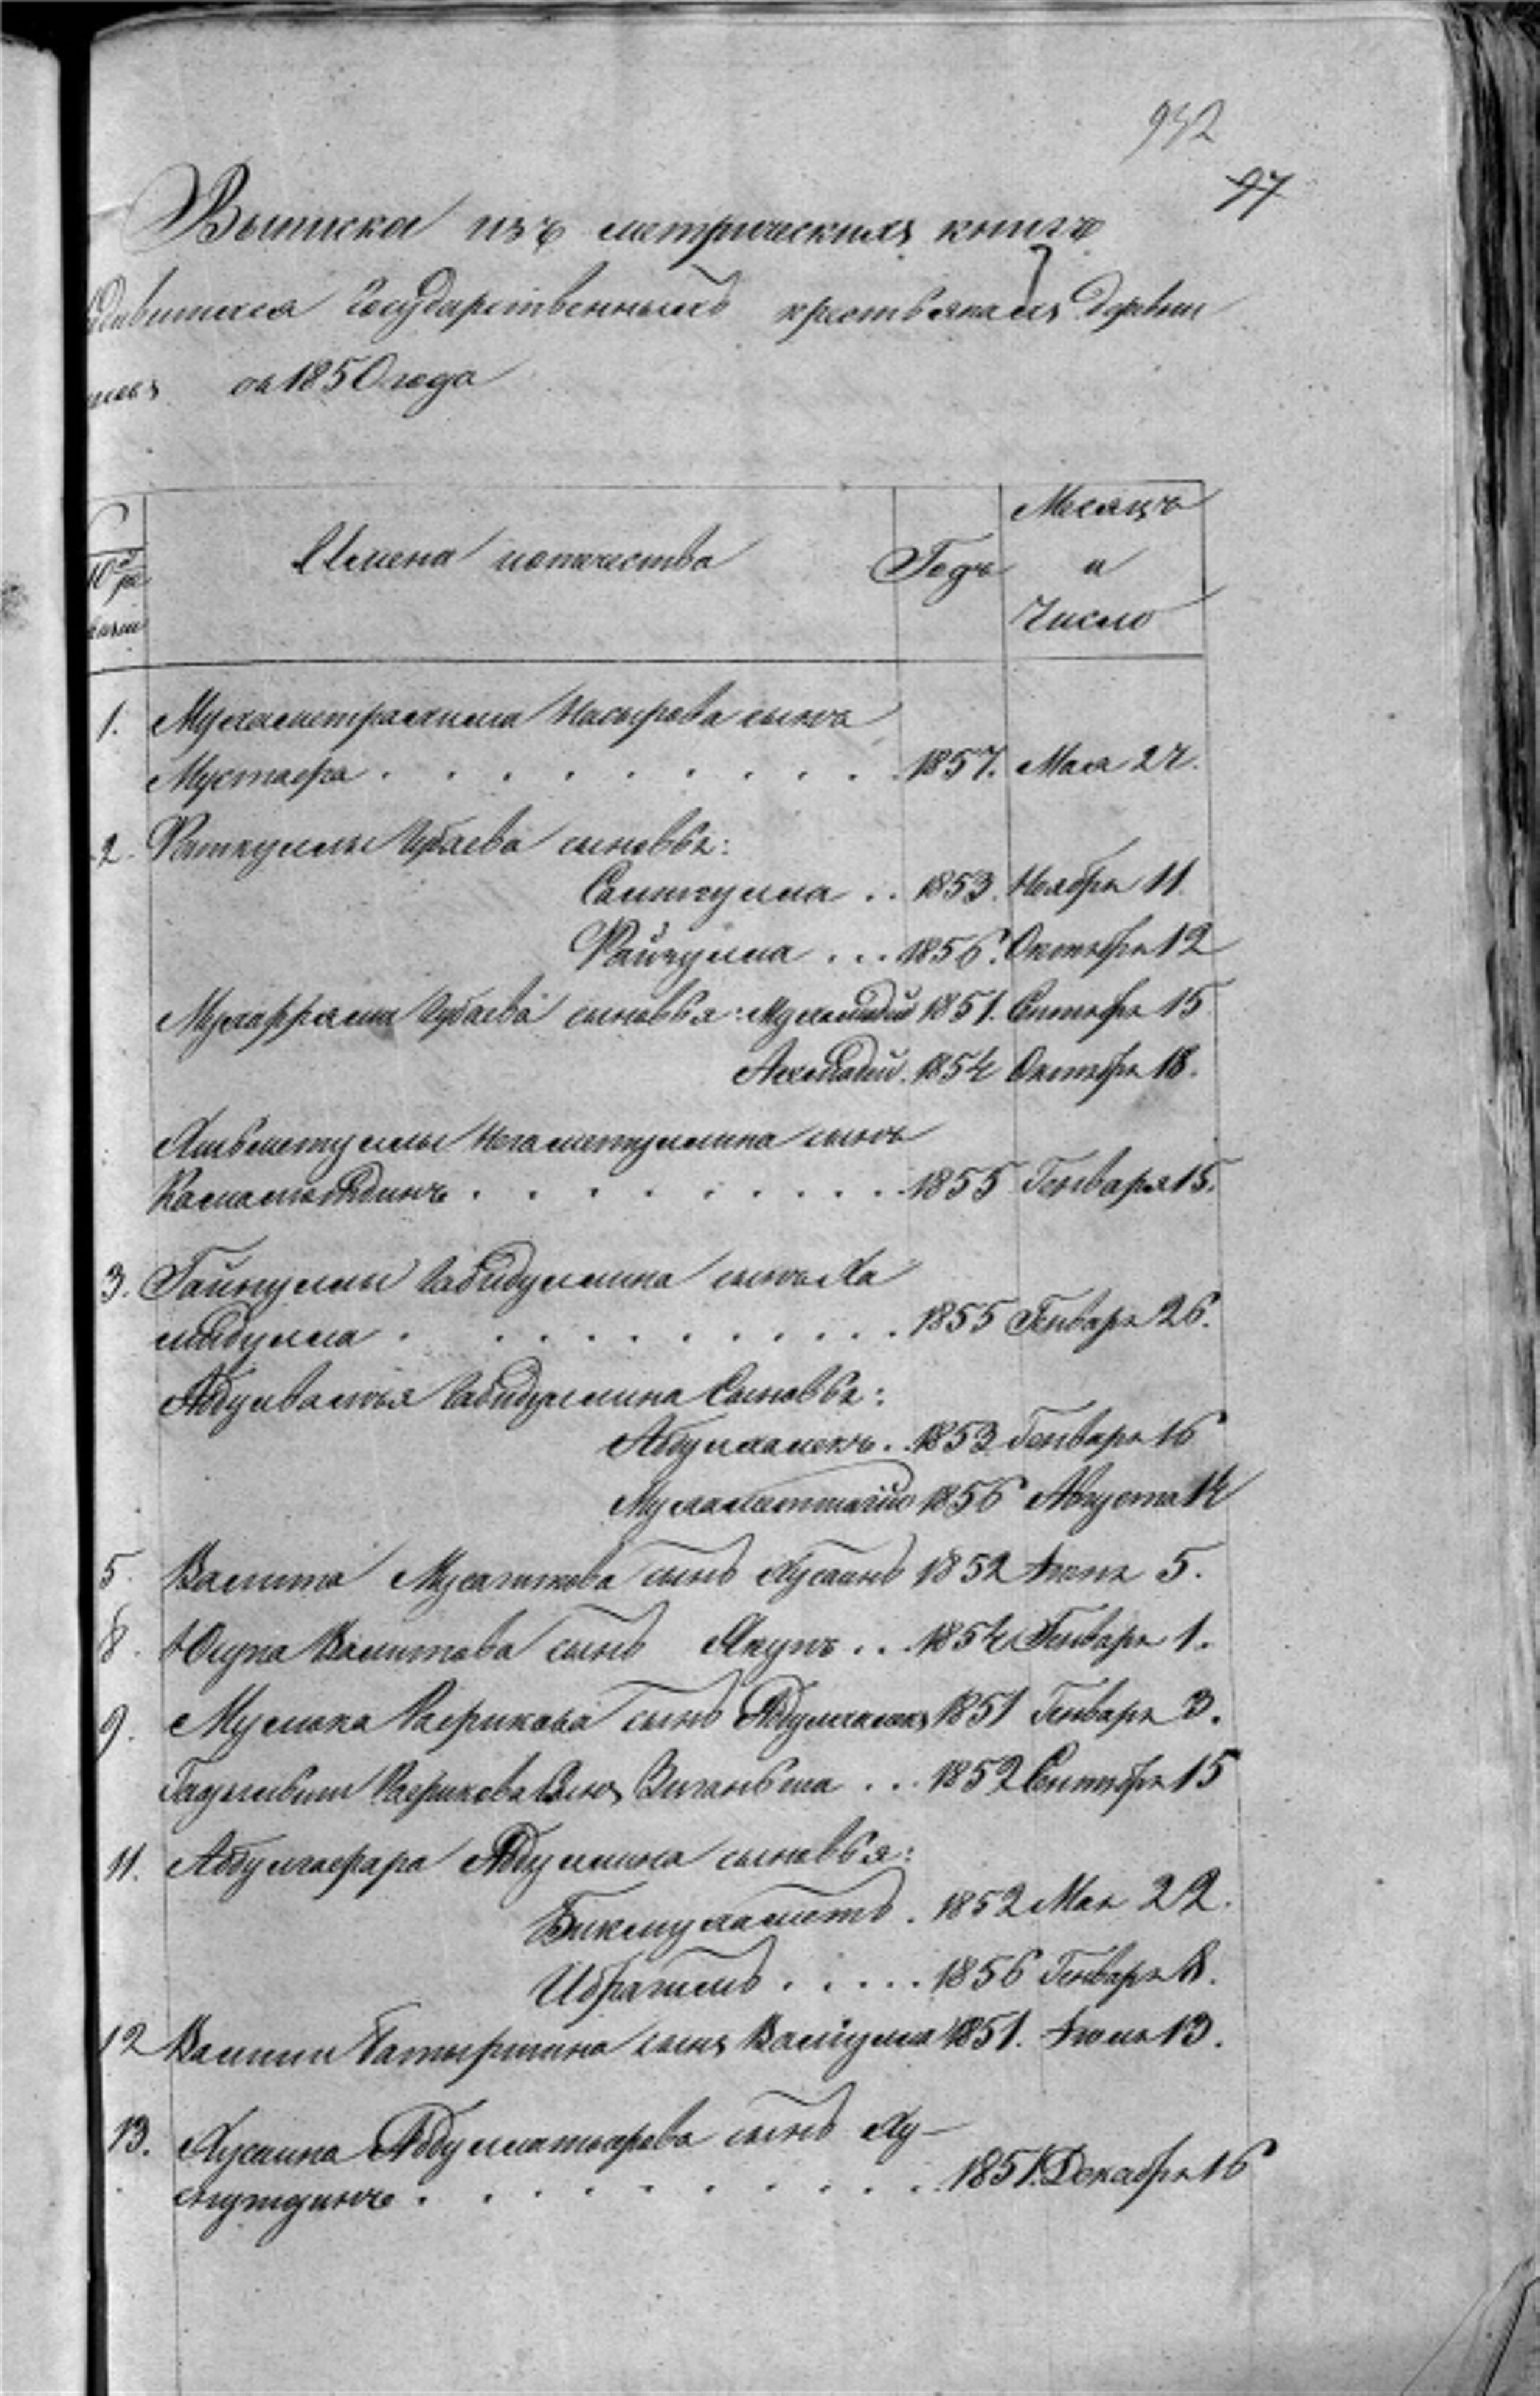 932
97
Выписка изъ метрическихъ книгъ
государственнымъ крестьянамъ деревни
съ 1850 года
Имена и отечества
Годъ
Месяцъ
и
Число
1. Мухаметрахима Насырова сынъ
Мустафа . . . . . . . . . 1857. Мая 24.
2. Фаткуллы Губаева сыновья:
Саиткулла . . 1853. Ноября 11.
Файкулла . . . 1856. Октября 12
Губаева сыновья: Мухамадий 1851. Сентября 15
Ахмадий. 1854 Октября 18.
Нигаметуллина сынъ
Камалетдинъ . . . . . . . . . 1855 Генваря 15.
3. Гайнуллы Габидуллина сынъ Ха
мидулла . . . . . . . . . . 1855 Генваря 26.
Абдулвалия Габидуллина Сыновья:
Абдулхаликъ . . 1853 Генваря 16
1856 Августа 14
5. Валита Мусагитова сынъ Хусаинъ 1852 Июня 5.
8. Юсупа Валитова сынъ Якупъ . . . 1854 Генваря 1.
9. Муллюка Рафикова сынъ Абдулхаликъ 1851 Генваря 3.
Рафикова Сынъ Зиганьша . . . 1852 Сентября 15
11. Абдулгафара Абдуллина сыновья:
Бикмухаметъ . 1852 Мая 22.
Ибрагимъ . . . . . 1856 Генваря 8.
12 Валиши Батыршина сынъ Валиулла 1851. Июля 13.
13. Хусаина Абдулсатарова сынъ Ху-
снутдинъ . . . . . . . . . . 1851. Декабря 16